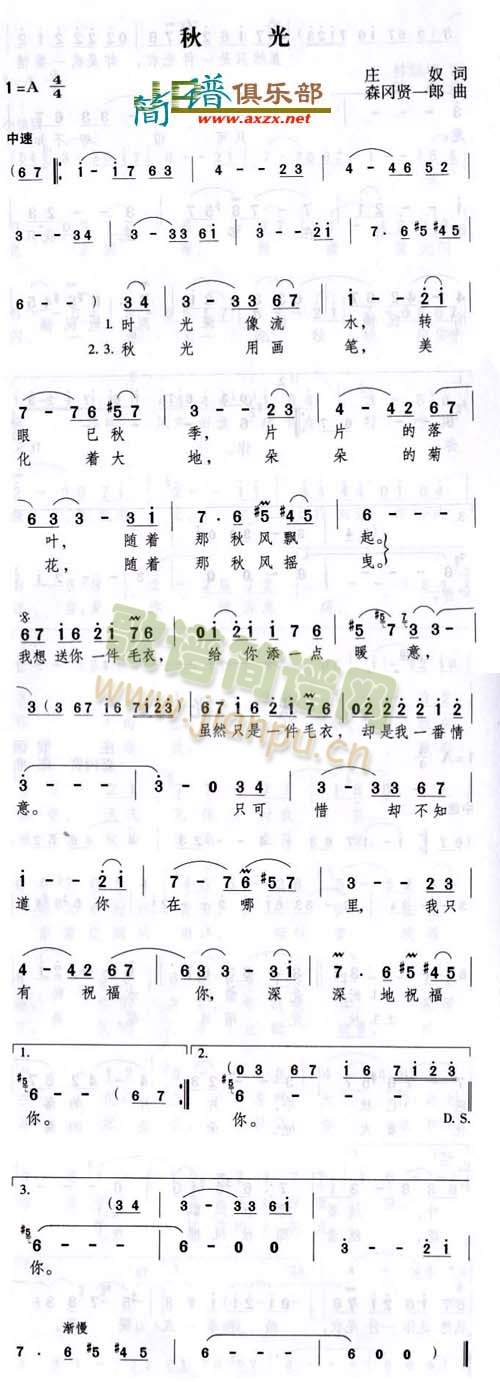 秋 光
1=A 4/4
庄 奴 词
森冈贤一郎 曲
简谱俱乐部
www.axzx.net
中速
(6 7 ‖: i - i 7 6 3 | 4 - - 2 3 | 4 - 4 6 5 2 |
3 - - 3 | 3 - 3 3 6 i | 3 - - 2 i | 7 · 6 #5 #4 5 |
6 - - ) 3 4 | 3 - 3 3 6 7 | i - - 2 i |
1. 时 光 像 流 水, 转
2. 3. 秋 光 用 画 笔, 美
7 - 7 6 #5 7 | 3 - - 2 3 | 4 - 4 2 6 7 |
眼 已 秋 季, 片 片 的 落
化 着 大 地, 朵 朵 的 菊
6 3 3 - 3 i | 7 · 6 #5 #4 5 | 6 - - - |
叶, 随 着 那 秋 风 飘 起。
花, 随 着 那 秋 风 摇 曳。
6 7 i 6 2 i 7 6 | 0 i 2 i i 7 6 | #5 7 3 3 - |
我 想 送 你 一 件 毛 衣, 给 你 添 一 点 暖 意,
3 (3 6 7 i 6 7 i 2 3) | 6 7 i 6 2 i 7 6 | 0 2 2 2 2 2 i 2 |
虽 然 只 是 一 件 毛 衣, 却 是 我 一 番 情
3 - - - | 3 - 0 3 4 | 3 - 3 3 6 7 |
意。 只 可 惜 却 不 知
i - - 2 i | 7 - 7 6 #5 7 | 3 - - 2 3 |
道 你 在 哪 里, 我 只
4 - 4 2 6 7 | 6 3 3 - 3 i | 7 6 #5 #4 5 |
有 祝 福 你, 深 深 地 祝 福
1. 2.
(0 3 6 7 i 6 7 i 2 3
#5 6 - - (6 7 :‖ #5 6 - - - ‖
你。 你。 D. S.
3.
(3 4 | 3 - 3 3 6 i
#5 6 - - - | 6 - 0 0 | 3 - - 2 i |
你。
渐慢
7 · 6 #5 #4 5 | 6 - - - | 6 0 0 0 ) ‖
歌谱简谱网
www.jianpu.cn